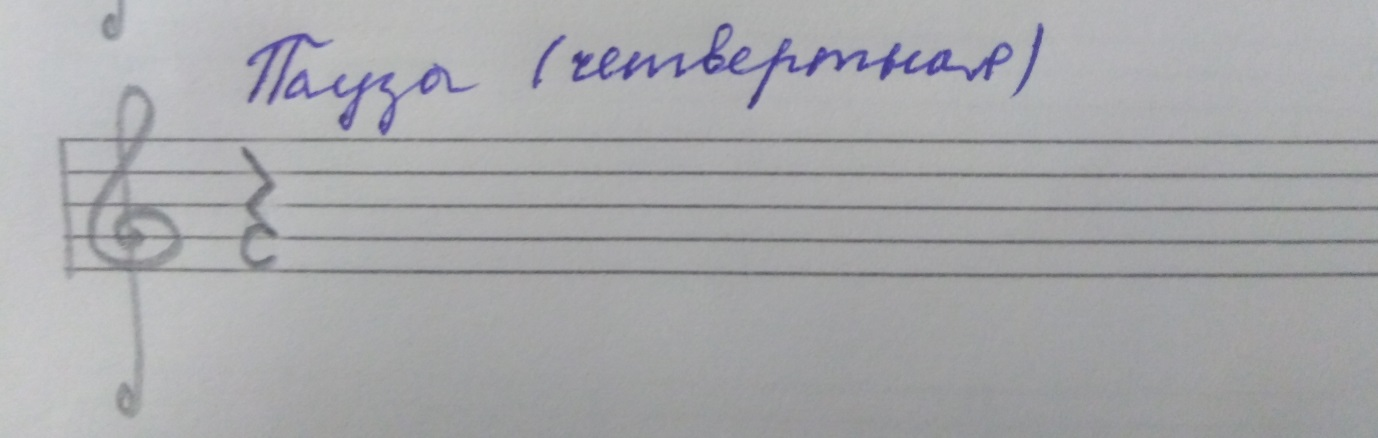 Пауза (четвертная)